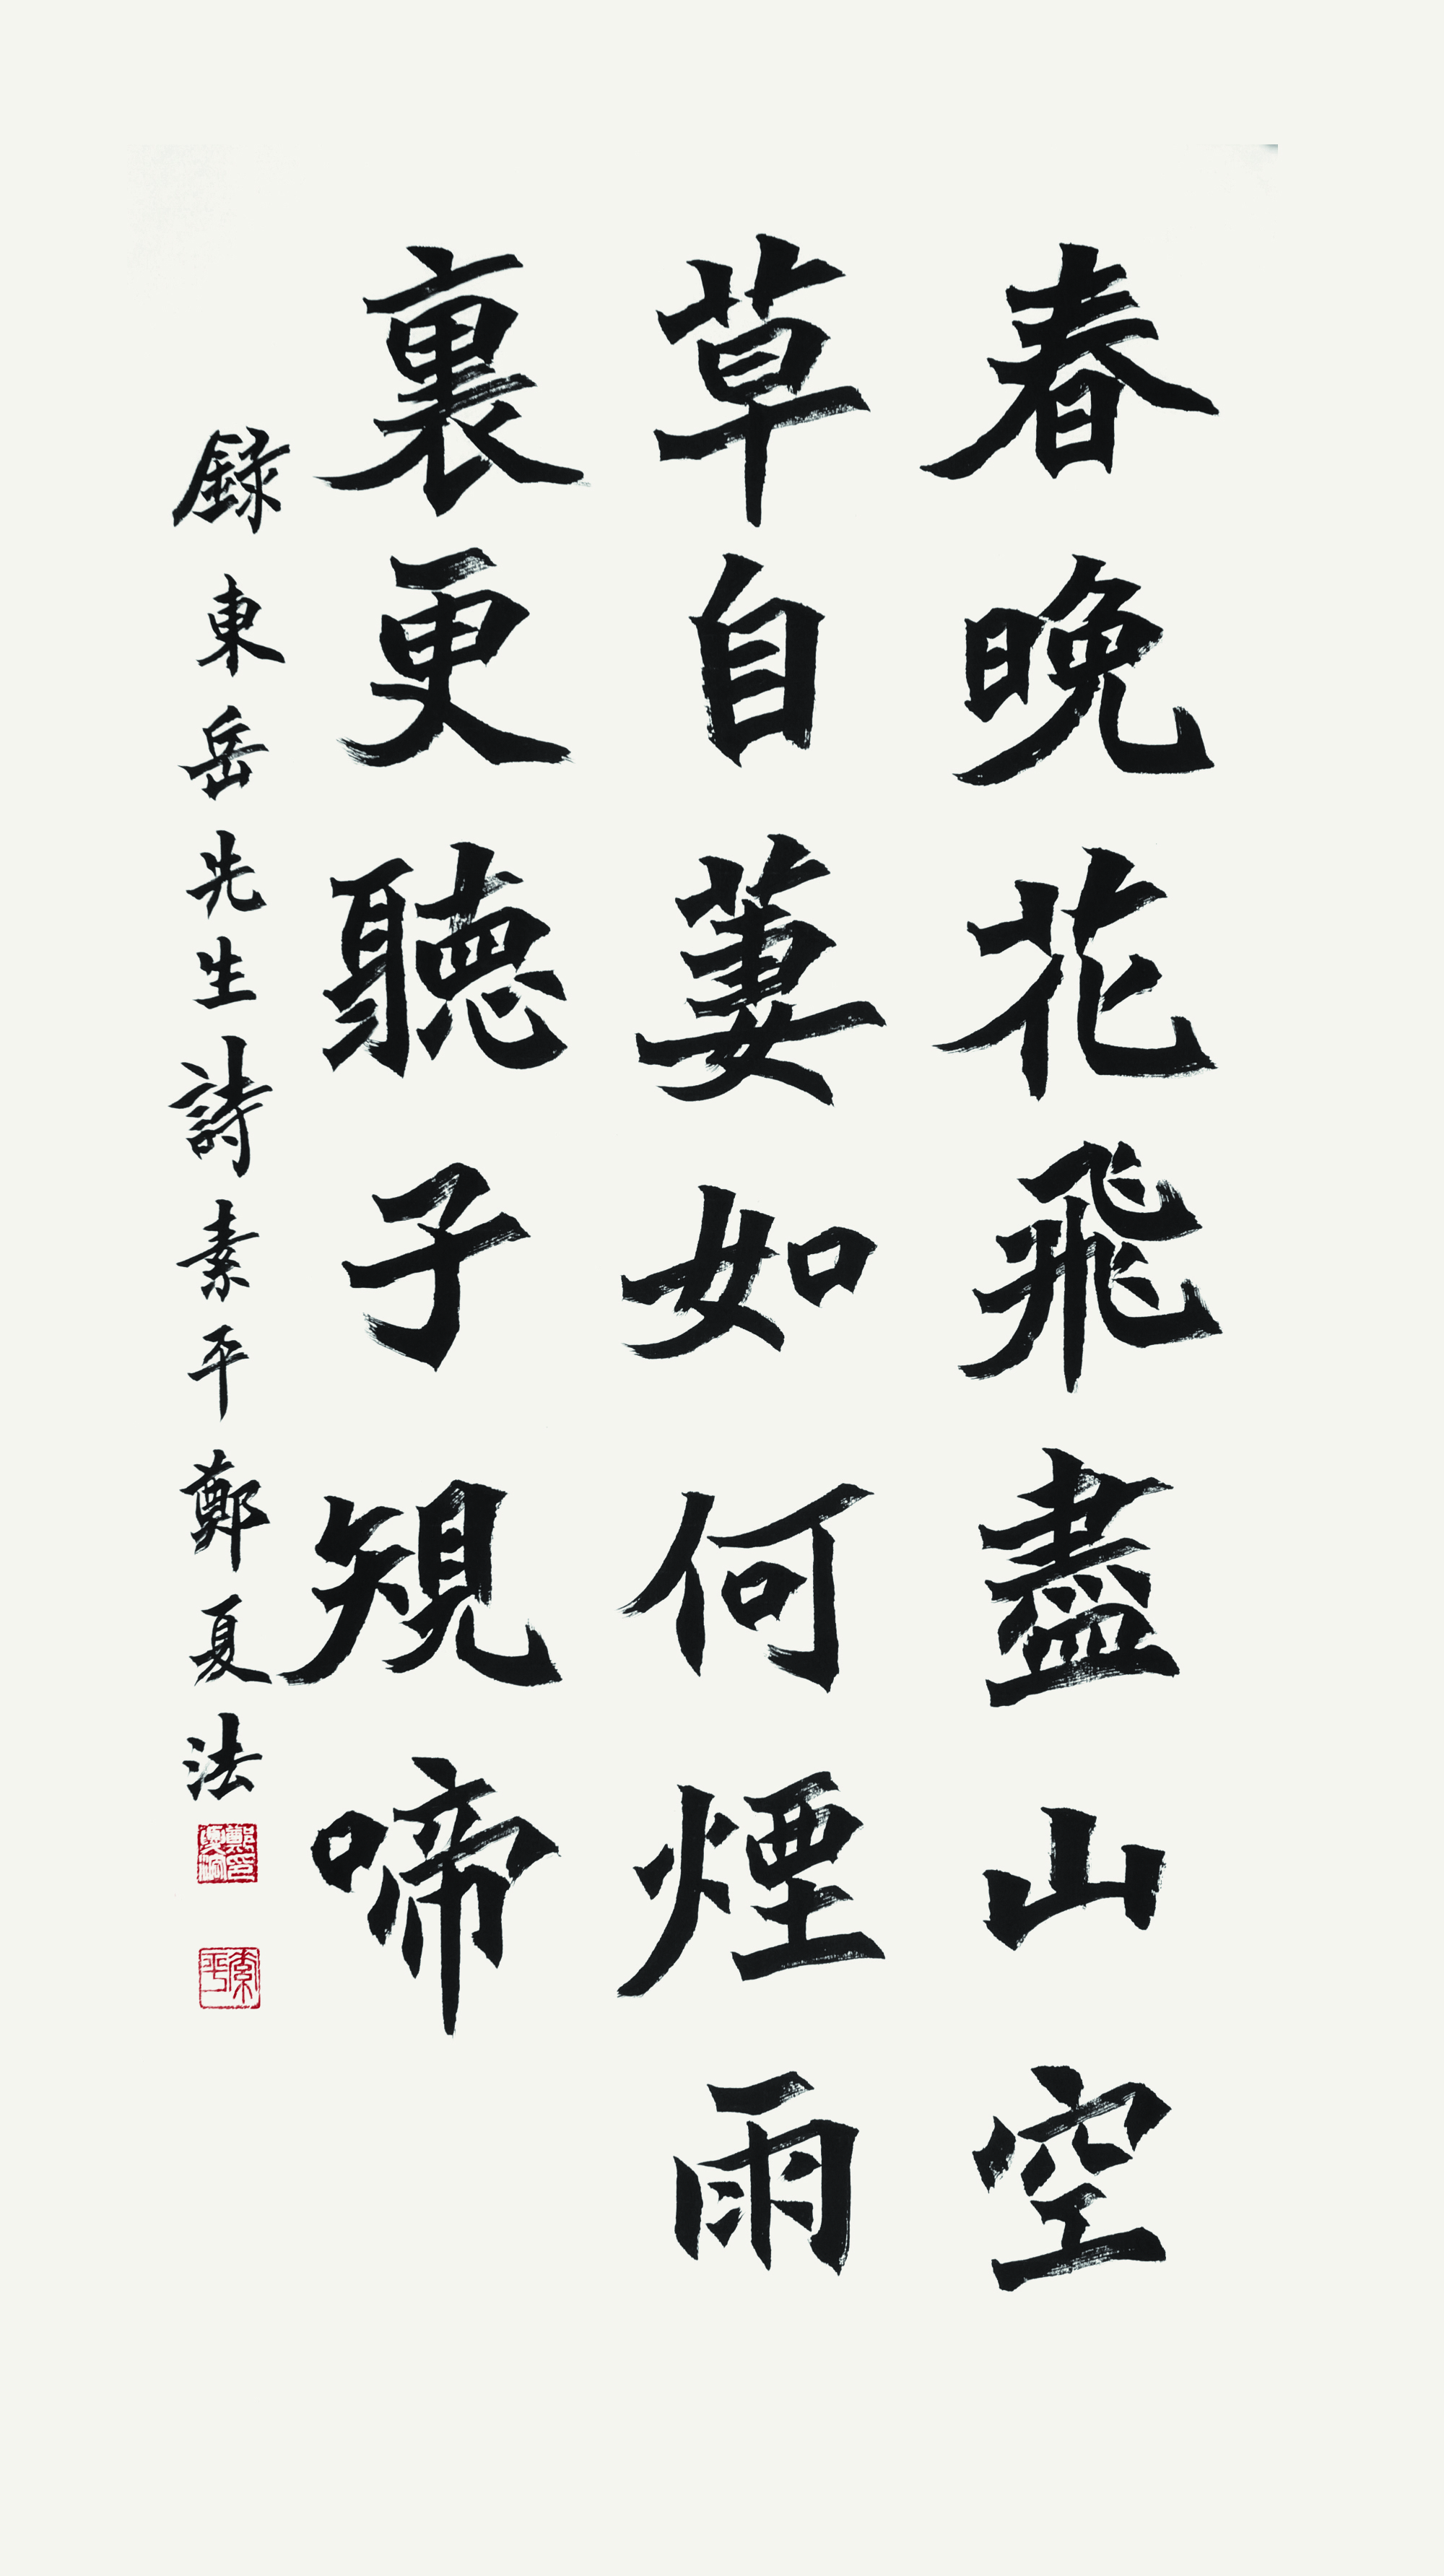 春晚花飛盡山空
草自萋如何煙雨
裏更聽子規啼
録東岳先生詩素平鄭夏法
鄭夏法印
素平